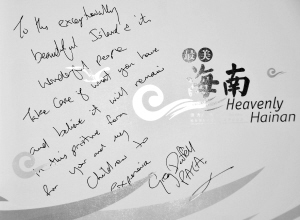 To this exceptionally
beautiful Island & it's
wonderful people
Take care of what you have
and believe it will remain
in this pristine form
for you and my
Children to
experience
Greg Duffell
PATA
最美
海南
Heavenly
Hainan